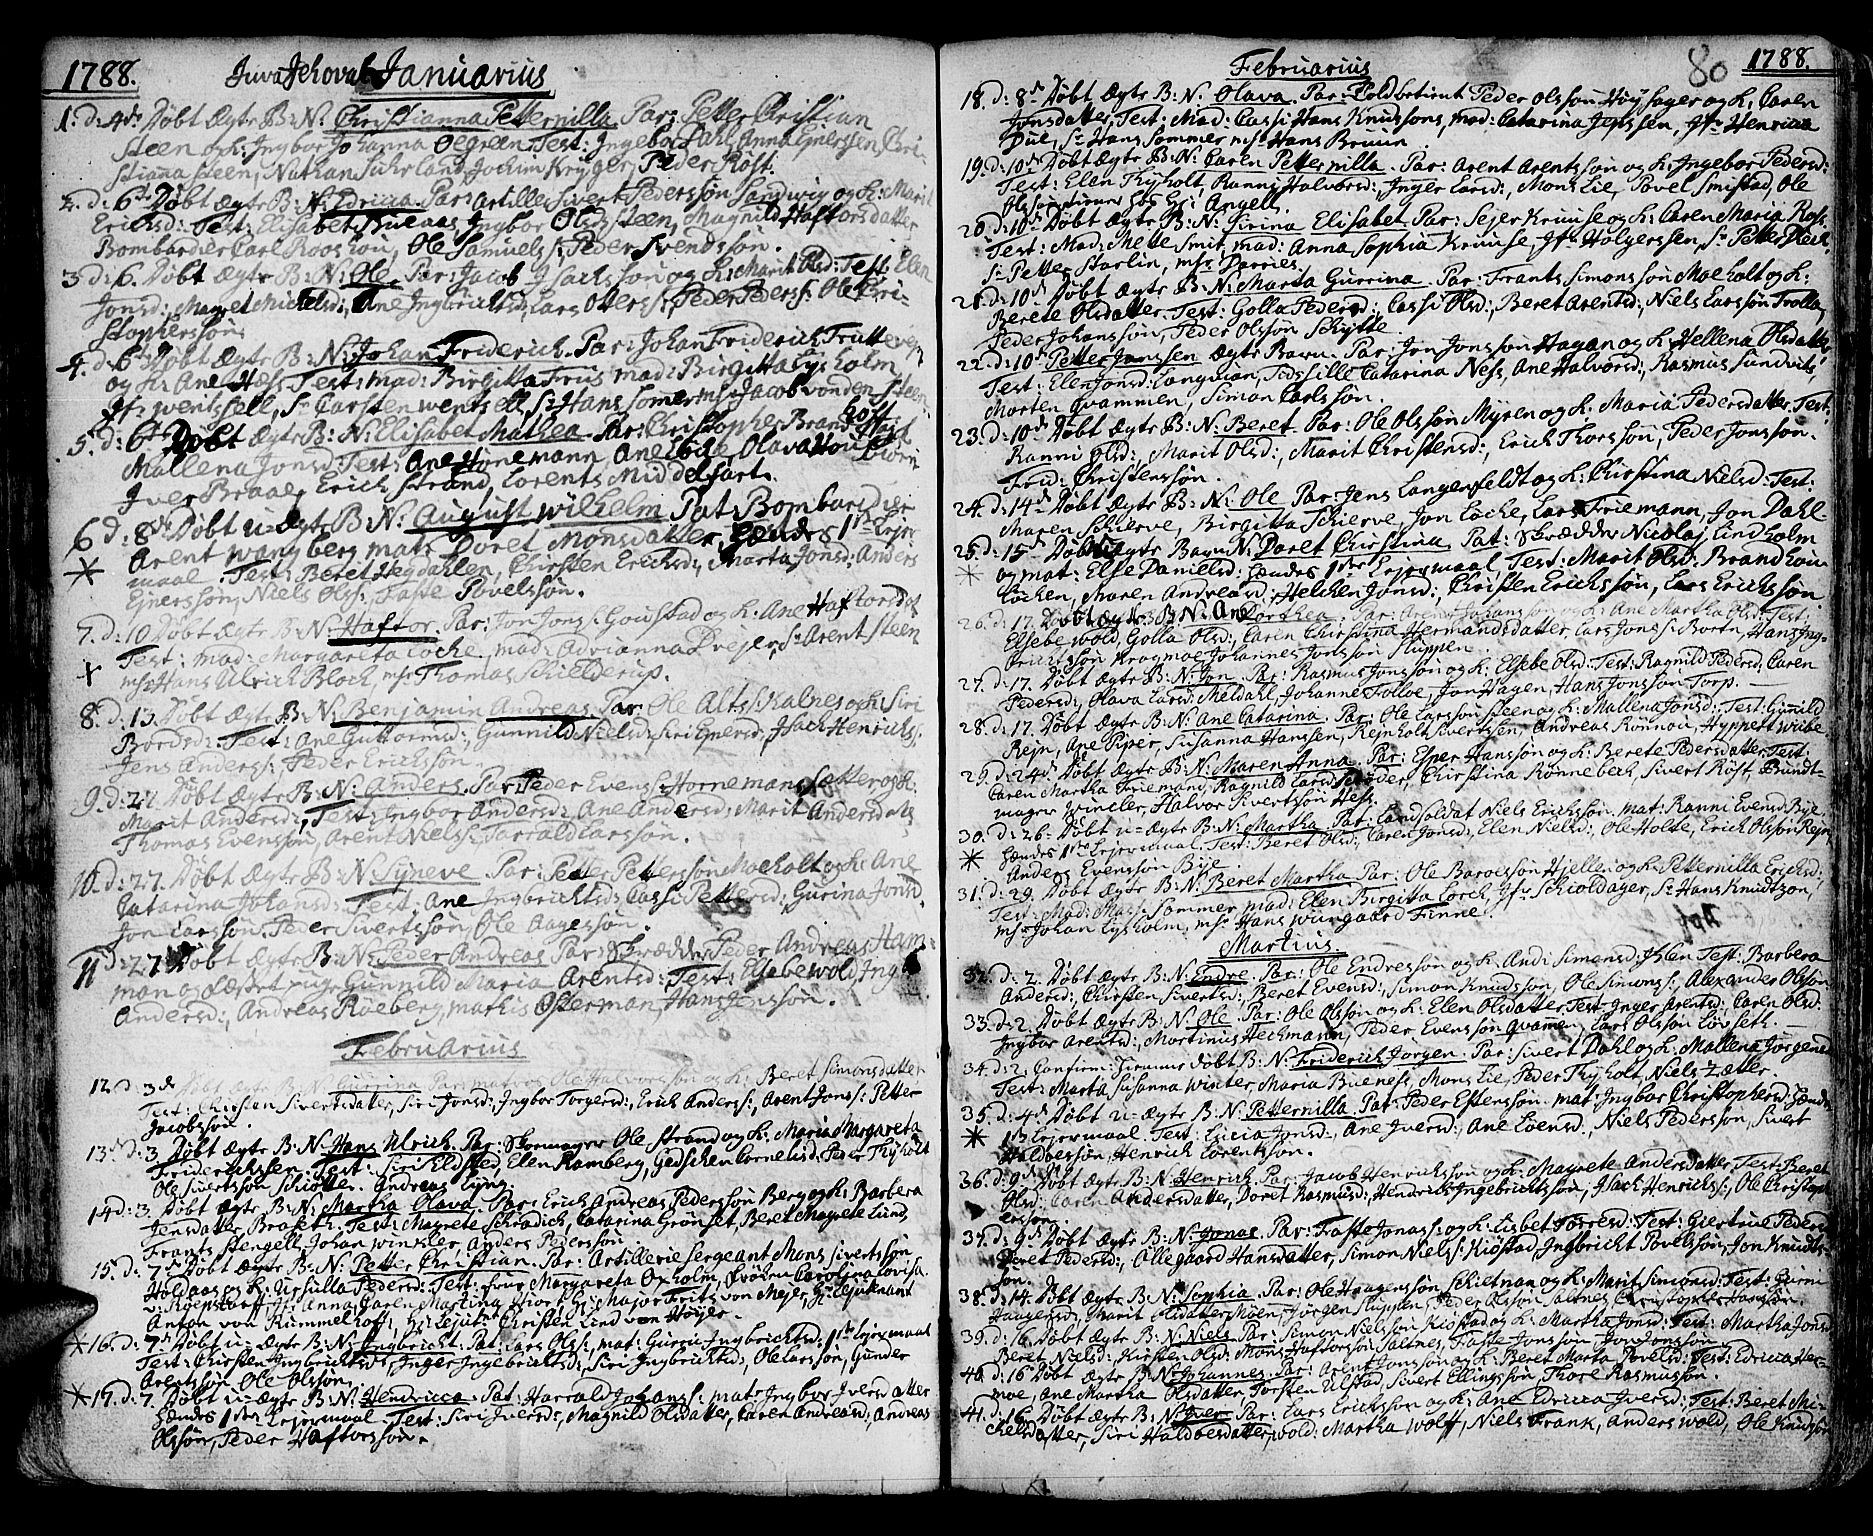 1788. Juva Jehova! Januarius
1. d: 4de Døbt Ægte B: N: Christianna Petternilla Par: Petter Christian
Steen og K: Ingbor Johanna Øegreen. Test: Ingebor Dahl, Anna Ejnersen, Chri-
stianna Steen, Nathan Suhrland, Jochim Kryger, Peder Röst.
2. d: 6te Døbt Ægte B: N: Edricca. Par: Artillerist Sivert Pedersøn Sandwig og K: Marit
Erichsd: Test: Elisabet Buenæs, Ingbor Olsd: Steen, Magnild Haftorsdatter
Bombardier Carl Roos Lou, Ole Samuels: Peder Svendsøn.
3 d: 6. Døbt Ægte B: N: Ole Par: Jacob Isachsøn og K: Marit Olsd: Test: Elen
Jonsd: Magret Michelsd:, Ane Ingbrichtsd, Lars Otters:, Peder Peders: Ole Chri-
stophersøn.
4. d: 6te Døbt Ægte B: N: Johan Friderich. Par: Johan Friderich Fruttevey
og K: Ane Hæss Test: mad: Birgitta Friis mad: Birgitta Lysholm
Jfr Wentssell, Sr Carsten Wentsell, Sr Hans Somer msr Jacob von den Steen.
5. d: 6te Døbt Ægte B: N: Elisabet Mathea. Par: Christopher Brand Host
Mallena Jonsd: Test: Ane Hornemann, Ane Lode, Olava
Iver Braae, Erich Strand, Lorents Middelfart.
6 d: 8de Døbt u-ægte B: N: August Wilhelm Pat: Bombardier
Arent Wangberg mat: Doret Monsdatter, Hændes 1ste Lejer-
maal. Test: Beret Hegdahlen, Christen Erichsd:, Marta Jonsd: Anders
Ejnersøn, Niels Ols:, Faste Povelsøn.
7. d: 10 Døbt Ægte B: N: Haftor. Par: Jon Jons: Goustad og K: Ane Haftorsdat
Test: mad: Margareta Loche, mad: Adrianna Drejer, Sr Arent Steen
msr Hans Ulrich Bloch, msr Thomas Schielderup.
8. d: 13. Døbt Ægte B: N: Benjamin Andreas Par: Ole Alts: Kalnes og K: Siri
Bordsd: Test: Ane Guttormsd:, Gunnild Nielsd: Siri Ejnersd:, Isach Henrichs,
Jens Anders: Peder Erichsøn.
9. d: 27. Døbt Ægte B: N: Anders. Par: Peder Evens: Hornemans Sætter og K:
Marit Andersd: Test: Ingbor Andersd: Ane Andersd: Marit Andersdat
Thomas Evensøn, Arent Niels: Tarrald Larsøn.
10. d: 27. Døbt Ægte B: N: Syneve Par: Petter Pettersøn Moeholt og K: Ane
Catarina Johansd: Test: Ane Ingbrichtsd: Cassi Pettersd: Gurina Jonsd
Jon Larssøn. Peder Sivertssøn, Ole Aagessøn.
11 d: 27 Døbt Ægte B: N: Peder Andreas Par: Skrædder Peder Andreas Ham-
man og Gunnild Maria Arentsd: Test: Elsebe Wold, Ingb
Andersd:, Andreas Rüeberg, mathis Osterman, Hans Jensøn.
Februarius
12. d. 3de Døbt Ægte B: N: Gurrina Par: matros Ole Halvorssøn og K: Beret Simonsdatter
Test: Christen Sivertsdatter, Siri Jonsd:, Ingbor Torgersd:, Erich Anders:, Arent Jons: Petter
Jacobsøn.
13. d: 3 Døbt Ægte B: N: Hans Ulrich. Par: Skomager Ole Strand og K: Maria Margareta
Friderichssen. Test: Siri Eldsted, Elen Ramberg, Gedschen Cornelisd: Peder Thyholt
Ole Sivertssøn Schiøtte. Andreas Lyng.
14 d: 3. Døbt Ægte B: N: Martha Olava. Par: Erich Andreas Pedersøn Berg og K: Barbera
Jensdatter Braseth. Test: Magrete Schradich, Catarina Grönset, Beret Magrete Lund,
Frants Stengell, Johan Winkler, Anders Pedersøn.
15. d: 7de Døbt Ægte B: N: Petter Christian. Par: Artillerie Sergeant Mons Sivertssøn
Holdaas og K: Ursilla Pedersd: Test: Frue Margareta Oxholm, Frøken Carolina Lovisa
v: Røepstorff Jfr Anna Caren Martina Hiort, Hr Major Frits von Mejer, Hr Lejutenant
Anton von Rummelhoff, Hr Lejutn: Christen Lind von Höyer.
16. d: 7de Døbt u-Ægte B: N: Ingbricht. Pat: Lars Ols:, mat: Guru Ingbrichtsd: 1ste Lejermaal
Test: Christen Ingbrichtsd: Inger Ingebrichtsd: Siri Ingbrichtsd, Ole Larssøn, Gunder
Arentsøn Ole Olsøn.
17. d: 7. Døbt u-Ægte B: N: Hendricca. Pat: Harrald Johans: mat: Ingbor Iversdatter
Hændes 1ste Lejermaal. Test: Siri Iversd:, Magnild Olsdatter, Caren Andreasd:, Andreas
Olssøn, Peder Haftorssøn.
Februarius 80 1788.
18. d: 8de Døbt Ægte B: N: Olava. Par: Toldbetient Peder Olssøn Høysager og K: Caren
Jonsdatter, Test: Mad: Cassi Hans Knudssons, mad: Catarina Jenssen, Jfr Henricca
Due, Sr Hans Sommer msr Hans Bruun.
19. d: 10de Døbt Ægte B: N: Caren Petternilla. Par: Arent Arentssøn og K: Ingebor Pedersd:
Test: Elen Thyholt, Ranni Halvorsd: Inger Larsd:, Mons Lie, Povel Smistad, Ole
Olssøn tiener hos Gr: Angell.
20. d: 10de Døbt Ægte B: N: Sirina Elisabet Par: Sejer Kruuse og K: Caren Maria Ross
Test: Mad: Mette Smit, mad: Anna Sophia Kruuse, Jfr Holgerssen, Sr Petter Bleck
Sr Petter Starlin, msr Darries.
21. d: 10de Døbt Ægte B: N: Marta Gurrina. Par: Frants Simonssøn Moeholt og K:
Berete Olsdatter. Test: Golla Pedersd:, Cassi Olsd:, Beret Arentsd:, Niels Larssøn Trolla
Peder Johanssøn, Peder Olssøn Schytte
22. d: 10de Petter Janssen Ægte Barn. Par: Jon Jonssøn Hagan og K: Hellena Olsdatter
Test: Elen Jonsd: Langvian, Sidssille Catarina Ness, Ane Halvorsd:, Rasmus Sundvits,
Morten Qvammen, Simon Carlssøn.
23. d: 10de Døbt Ægte B: N: Beret Par: Ole Olssøn Myren og K: Maria Pedersdatter Test:
Ranni Olsd:, Marit Olsd:, Marit Christensd:, Erich Thorssøn, Peder Jonssøn.
Frid: Christenssøn.
24. d: 14de Døbt Ægte B: N: Ole Par: Jens Langenfeldt og K: Christina Nielsd: Test:
Maren Schierve, Birgitta Schierve, Jon Loche, Lars Friemann, Jon Dahl.
25. d: 15de Døbt u-ægte Barn N: Doret Christina Pat: Skrædder Nicolaj Lindholm
og mat: Else Danielsd: Hændes 1ste Lejermaal Test: Marit Olsd: Brand hou
Løchen, Maren Andreasd: Helchen Jonsd:, Christen Erichssøn, Lars Erichssøn.
26. d: 17. Døbt Ægte B: N: Ane Dorthea. Par: Arent Johanssøn og K: Ane Martha Olsd: Test:
Elsebe Wold, Golla Olsd:, Caren Christina Hermandsdatter, Lars Jons: Born, Hans Ing-
brichtssøn Kragmoe Johannes Jonssøn Sluppen.
27. d: 17. Døbt Ægte B: N: Jon. Par: Rasmus Jonssøn og K: Elsebe Olsd: Test: Ragnild Pedersd:, Caren
Pedersd:, Olava Larsd: Meldahl, Johannes Tolloe, Jon Hagen, Hans Jonssøn Torp.
28. d: 17. Døbt Ægte B: N: Ane Catarina. Par: Ole Larssøn Steen og K: Mallena Jonsd: Test: Gunild
Rejn, Ane Piper, Susanna Hanssen, Rejnholt Sivertssen, Andreas Rönnou, Hyppert Wibe
29. d: 24de Døbt Ægte B: N: Maren Anna. Par: Esper Hanssøn og K: Berete Pedersdatter. Test:
Caren Martha Friemand, Ragnild Larsd: Schrøder, Christina Rönnebech, Sivert Röst, Bundt-
mager Wincler, Halvor Sivertssøn Hess.
30. d: 26. Døbt u-ægte B: N: Martha Pat: Landsoldat Niels Erichssøn. mat: Ranni Evensd: Bye
Hændes 1ste Lejermaal. Test: Beret Olsd:, Caren Jonsd:, Elen Nielsd:, Ole Holte, Erich Olssøn Rejn,
Anders Evenssøn Bye.
31. d: 29. Døbt Ægte B: N: Beret Martha Par: Ole Baroessøn Hjellen og K: Petternilla Erichsd:,
Test: Mad: Mass: Sommer mad: Elen Birgitta Lorch, Jfr Schioldager, Sr Hans Knudtzon,
msr Johan Lysholm, msr Hans Wungaard Finne.
Martius.
32. d: 2. Døbt Ægte B: N: Endre. Par: Ole Endressøn og K: And: Simensd: Islen Test: Barbera
Andersd:, Christen Sivertsd:, Beret Evensd:, Simon Knudssøn, Ole Simons:, Alexander Olssøn
33. d: 2. Døbt Ægte B: N: Ole Par: Ole Olssøn og K: Elen Olsdatter Test Inger Arentsd:, Caren Olsd:
Ingbor Arentsd:, Martinus Hechmann, Peder Evenssøn Qvamen, Lars Olssøn Lövseth.
34. d: 2. Confirm: Hiemmedøbt B: N: Friderich Jörgen. Par: Sivert Dahl og K: Mallena Jörgensd
Test: Marta Susanna Winter Maria Bueness, Mons Lie, Peder Thyholt, Niels Zætter.
35. d: 4de Døbt u-Ægte B: N: Petternilla. Pat: Peder Estenssøn. mat: Ingbor Christophersd: Hændes
1ste Lejermaal. Test: Licia Jonsd:, Ane Iversd:, Ane Evensd:, Niels Pederssøn, Sivert
Haldberssøn, Henrich Lorentssøn.
36. d: 9de Døbt Ægte B: N: Henrich Par: Jacob Henrichssøn og K: Magrete Andersdatter, Test: Beret
Olsd: Caren Andersdatter, Dorit Rasmusd:, Hendrich Ingebrichtssøn, Isach Henrichs:, Ole Christoph
erssøn.
37. d: 9de Døbt Ægte B: N: Jonas. Par: Faste Jonas: og K: Lisbet Torresd: Test: Giertrue Pedersd
Beret Pedersd:, Ollegaard Hansdatter, Simon Niels: Kiöstad, Ingbricht Povelssøn, Jon Knudts-
søn.
38. d: 14. Døbt Ægte B: N: Sophia. Par: Ole Haagenssøn Schietnan og K: Marit Simonsd: Test: Guru
Haagensd:, Marit Olsdatter Moen, Jörgen Sluppen, Peder Olssøn Saltnes, Christopher Hanssøn.
39. d: 16. Døbt Ægte B: N: Niels Par: Simon Nielssøn Kiöstad og K: Martha Jonsd: Test: Martha Jonsd
Beret Nielsd: Kirsten Olsd: Mons Haftorssøn Saltnes, Faste Jonssøn, Jon Jonssøn.
40. d: 16 Døbt Ægte B: N: Johannes. Par: Arent Jonssøn og K: Beret Marta Povelsd: Test: Edricca Her-
moe, Ane Martha Olsdatter, Torsten Ulstad, Sivert Ellingssøn, Thore Rasmussøn.
41. d: 16. Døbt Ægte B: N: Iver Par: Lars Erichssøn og K: Ane Edricca Iversd: Test: Beret Mi-
chelsdatter, Siri Haldbersdatter, wold: Martha Wolff, Niels Frank, Anders Wold, Ole Knudssøn